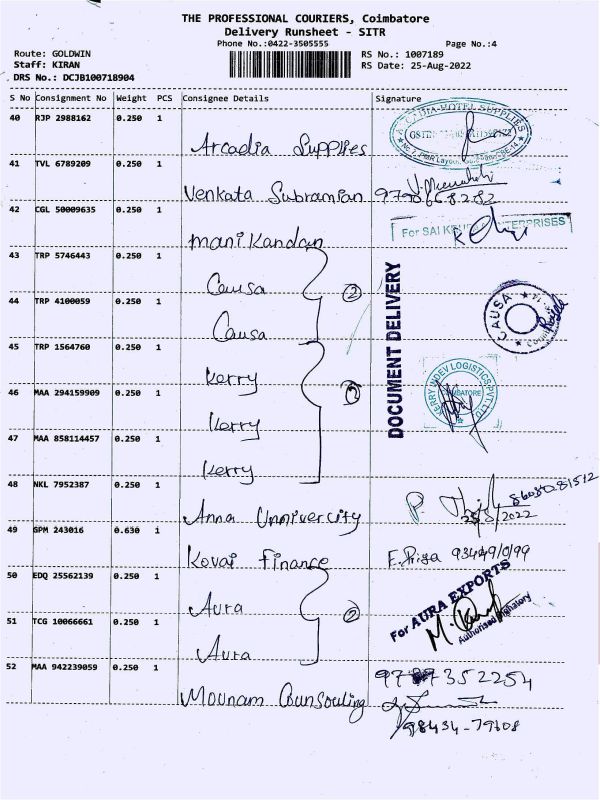 THE PROFESSIONAL COURIERS, Coimbatore
Delivery Runsheet - SITR
Phone No.:0422-3505555
Page No.:4
Route: GOLDWIN
Staff: KIRAN
DRS No.: DCJB100718904
RS No.: 1007189
RS Date: 25-Aug-2022
S No Consignment No Weight PCS Consignee Details Signature
40 RJP 2988162 0.250 1
Arcadia Supplies
41 TVL 6789209 0.250 1
Venkata Subramian
42 CGL 50009635 0.250 1
For SAI ENTERPRISES
manikandan
43 TRP 5746443 0.250 1
Causa 2
44 TRP 4100059 0.250 1
CAUSA
Causa
DOCUMENT DELIVERY
45 TRP 1564760 0.250 1
Kerry
46 MAA 294159909 0.250 1
KERRY INDEV LOGISTICS PVT LTD
Kerry
47 MAA 858114457 0.250 1
Kerry
48 NKL 7952387 0.250 1
Anna Unnivercity
25/8/2022
49 GPM 243016 0.630 1
Kovai Finance F. Priya
50 EDQ 25562139 0.250 1
Aura 2
For AURA EXPORTS
Authorised Signatory
51 TCG 10066661 0.250 1
Aura
52 MAA 942239059 0.250 1
Mounam Counsouling
98434-79608